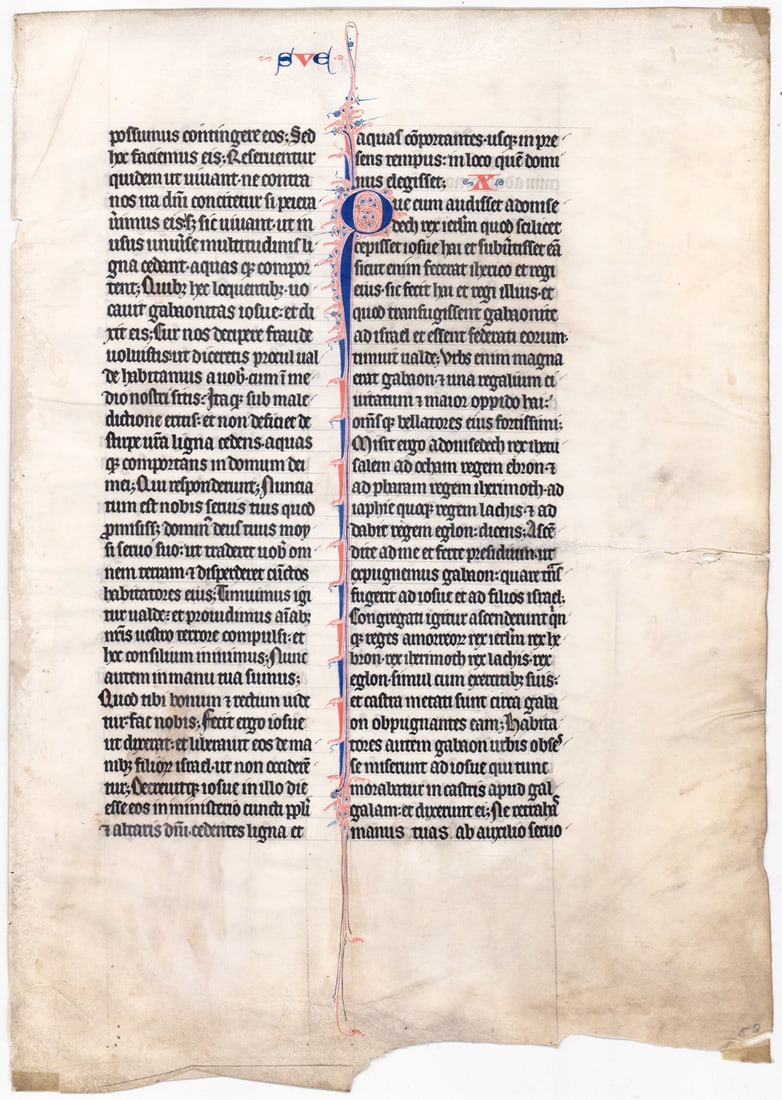 SVE
possumus contingere eos; Sed
hoc faciemus eis; Reseruentur
quidem ut uiuant ne contra
nos ira dñi concitetur si peiera
uerimus eis; sic uiuant ut in
usus uniuerse multitudinis li
gna cedant aquas q; compor
tent; Quib; hec loquentib; uo
cauit gabaonitas iosue et di
xit eis; Cur nos decipere fraude
uoluistis ut diceretis procul ual
de habitamus a uob cum ī me
dio nostri sitis; Itaq; sub male
dictione eritis et non deficiet de
stirpe urā ligna cedens aquas
q; comportans in domum dei
mei; Qui responderunt; Nuncia
tum est nobis seruis tuis quod
promisiss; domin deus tuus moy
si seruo suo ut traderet uob om
nem terram ⁊ disperderet cūctos
habitatores eius; Timuimus igi
tur ualde et prouidimus aīab;
nr̄is uestro terrore compulsi et
hoc consilium iniuimus; Nunc
autem in manu tua sumus;
Quod tibi bonum ⁊ rectum uide
tur fac nobis; Fecit ergo iosue
ut dixerat et liberauit eos de ma
nib; filior israel ut non occiderē
tur; Decreuitq; iosue in illo die
esse eos in ministerio cuncti ppli
⁊ altaris dñi cedentes ligna et
aquas cōportantes usq; in pre
sens tempus in loco quē domi
nus elegisset; X
Que cum audisset adonise
dech rex ierlm quod scilicet
cepisset iosue hai et subūtisset eā
sicut enim fecerat iherico et regi
eius sic fecit hai et regi illius et
quod transfugissent gabaonite
ad israel et essent federati eorum
timuit ualde; Vrbs enim magna
erat gabaon ⁊ una regalium ci
uitatum ⁊ maior oppido hai
om̄sq; bellatores eius fortissimi;
Misit ergo adonisedech rex iheru
salem ad ocham regem ebron ⁊
ad pharam regem iherimoth ad
iaphie quoq; regem lachis ⁊ ad
dabir regem eglon dicens; Ascē
dite ad me et ferte presidium ut
expugnemus gabaon quare trās
fugerit ad iosue et ad filios israel;
Congregati igitur ascenderunt qīn
q; reges amorreor rex ierlm rex he
bron rex iherimoth rex lachis rex
eglon simul cum exercitib; suis
et castra metati sunt circa gaba
on obpugnantes eam; Habita
tores autem gabaon urbis obse
se miserunt ad iosue qui tunc
morabatur in castris apud gal
galam et dixerunt ei; Ne retrahas
manus tuas ab auxilio seruo